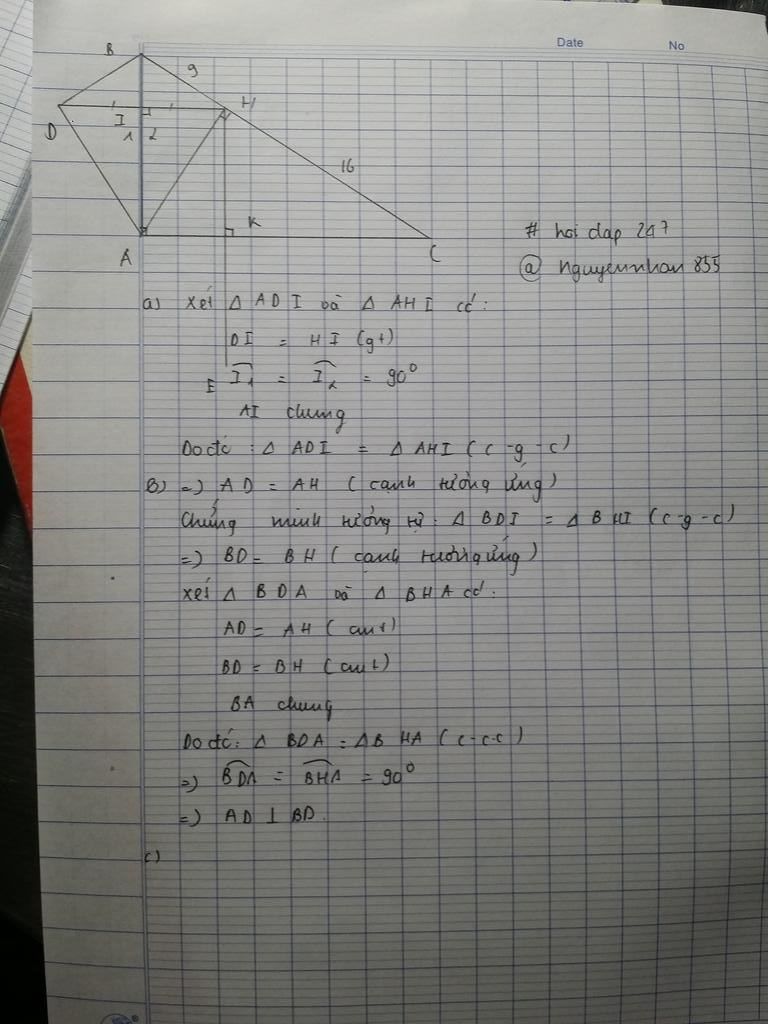 Date No
B
9
H
D
I
1 2
16
K
A
C
# hoi dap 247
@ nguyennhan 855
a) Xét Δ ADI và Δ AHI có:
DI = HI (gt)
E
I1 = I2 = 90°
AI chung
Do đó : Δ ADI = Δ AHI (c-g-c)
B) =) AD = AH (cạnh tương ứng)
Chứng minh tương tự: Δ BDI = Δ BHI (c-g-c)
=) BD = BH (cạnh tương ứng)
Xét Δ BDA và Δ BHA có:
AD = AH (cmt)
BD = BH (cmt)
BA chung
Do đó: Δ BDA = Δ BHA (c-c-c)
=) BDA = BHA = 90°
=) AD ⊥ BD.
c)